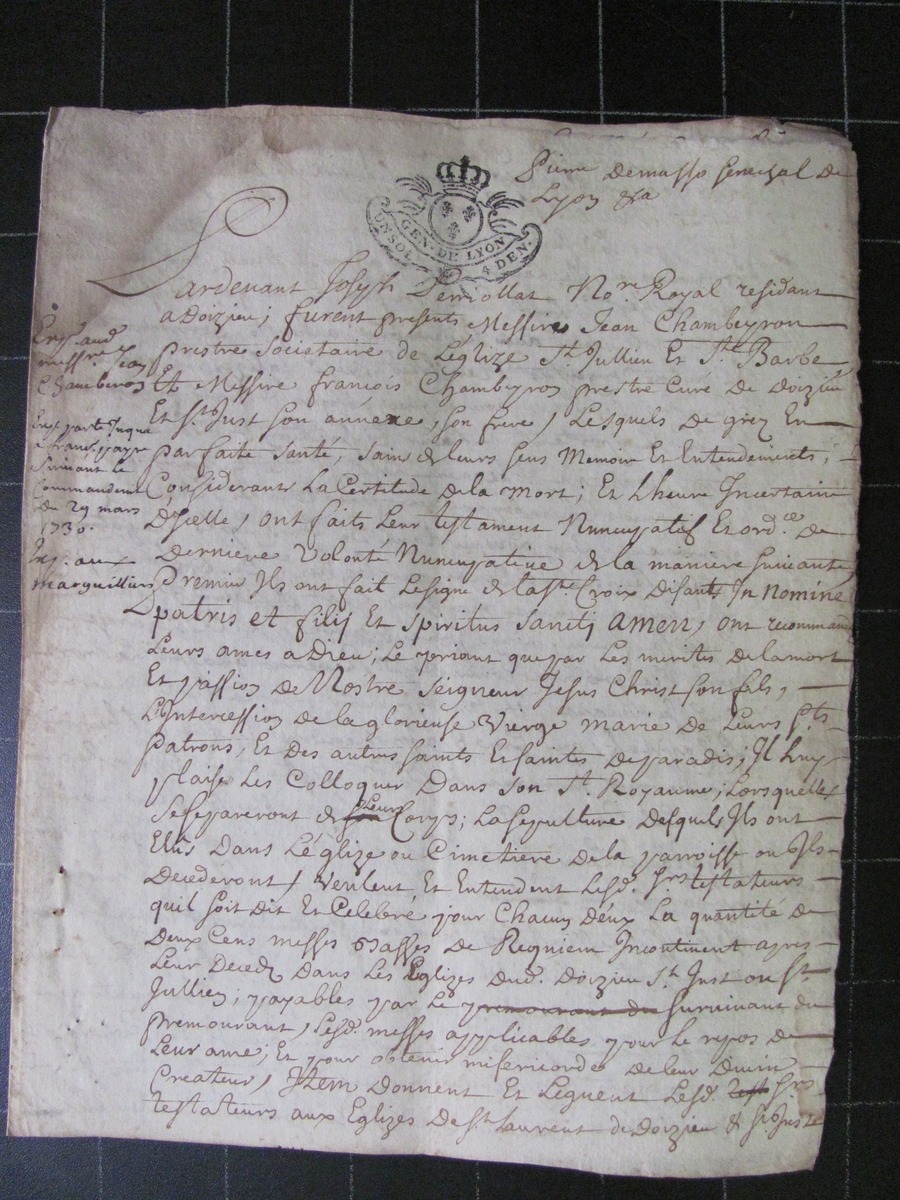 Pierre Demasso Senechal de
Lyon &a
GEN. DE LYON
UN SOL 4 DEN.
Pardevant Joseph Perriollat No.re Royal residant
a Doizieu, furent presents Messire Jean Chambeyron
prestre Societaire de L'eglize St. Jullien Et Ste Barbe
Et Messire francois Chambeyron prestre Curé De Doizieu
Et St. Just son annexe, son frere, Lesquels de grez En
parfaite Santé, sains de leurs sens Memoire Et Entendements,
Considerants La Certitude de la mort; Et L'heure Incertaine
D'icelle, ont faits Leur testament Nuncupatif Et ord.ce de
Derniere Volonté Nuncupative de la maniere Suivante
Premier Ils ont fait Le signe de la Ste. Croix Disants In nomine
patris et filij Et Spiritus Sancti amen, ont recommandé
Leurs ames a Dieu; Le priant que par Les merites de la mort
Et passion de Nostre Seigneur Jesus Christ son fils,
L'Intercession de la glorieuse Vierge marie de Leurs Sts
patrons, Et des autres saints Et saintes de paradis, Il Luy
plaise Les Colloquer Dans son St. Royaume, Lorsquelles
Se separeront de Leurs Corps; La sepulture Desquels Ils ont
Elus Dans L'église ou Cimetiere de la parroisse ou Ils
Decederont, Veulent Et Entendent Lesd. Srs testateurs
quil soit Dit Et Celebré pour Chacun D'eux La quantité de
Deux Cens messes basses de Requiem Incontinent apres
Leur Deced Dans Les Eglizes dud. Doizieu St. Just ou St
Jullien; payables par Le premourant du Survivant du
premourant, Lesd. messes applicables pour Le repos de
Leur ame; Et pour obtenir misericorde de leur Divin
Createur, Item Donnent Et Leguent Lesd. test Srs
testateurs aux Eglizes De St Laurent de Doizieu & St Juste
Exp. aud
messire Jean
Chamberon
Exp. parte In qua
a franc. payre
Suivant Le
Commandement
du 29 mars
1730.
Exp. aux
marguilliers